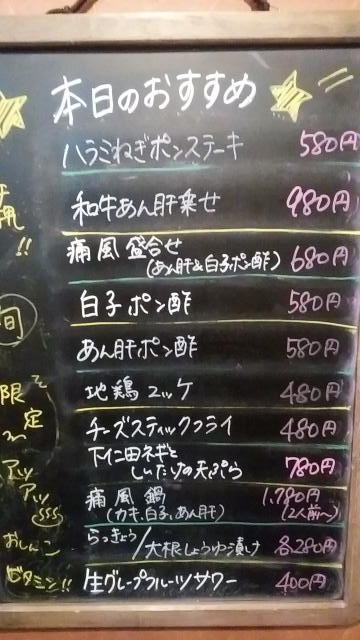 本日のおすすめ
ハラミねぎポンステーキ 580円
和牛あん肝乗せ 980円
痛風盛合せ
(あん肝&白子ポン酢) 680円
白子ポン酢 580円
あん肝ポン酢 580円
地鶏ユッケ 480円
チーズスティックフライ 480円
下仁田ネギと
しいたけの天ぷら 780円
痛風鍋 1,780円
(カキ、白子、あん肝) (2人前〜)
らっきょう/大根しょうゆ漬け 各280円
生グレープフルーツサワー 400円
!!
旬
限定
アッ
アッ
おしんこ
ビタミン!!